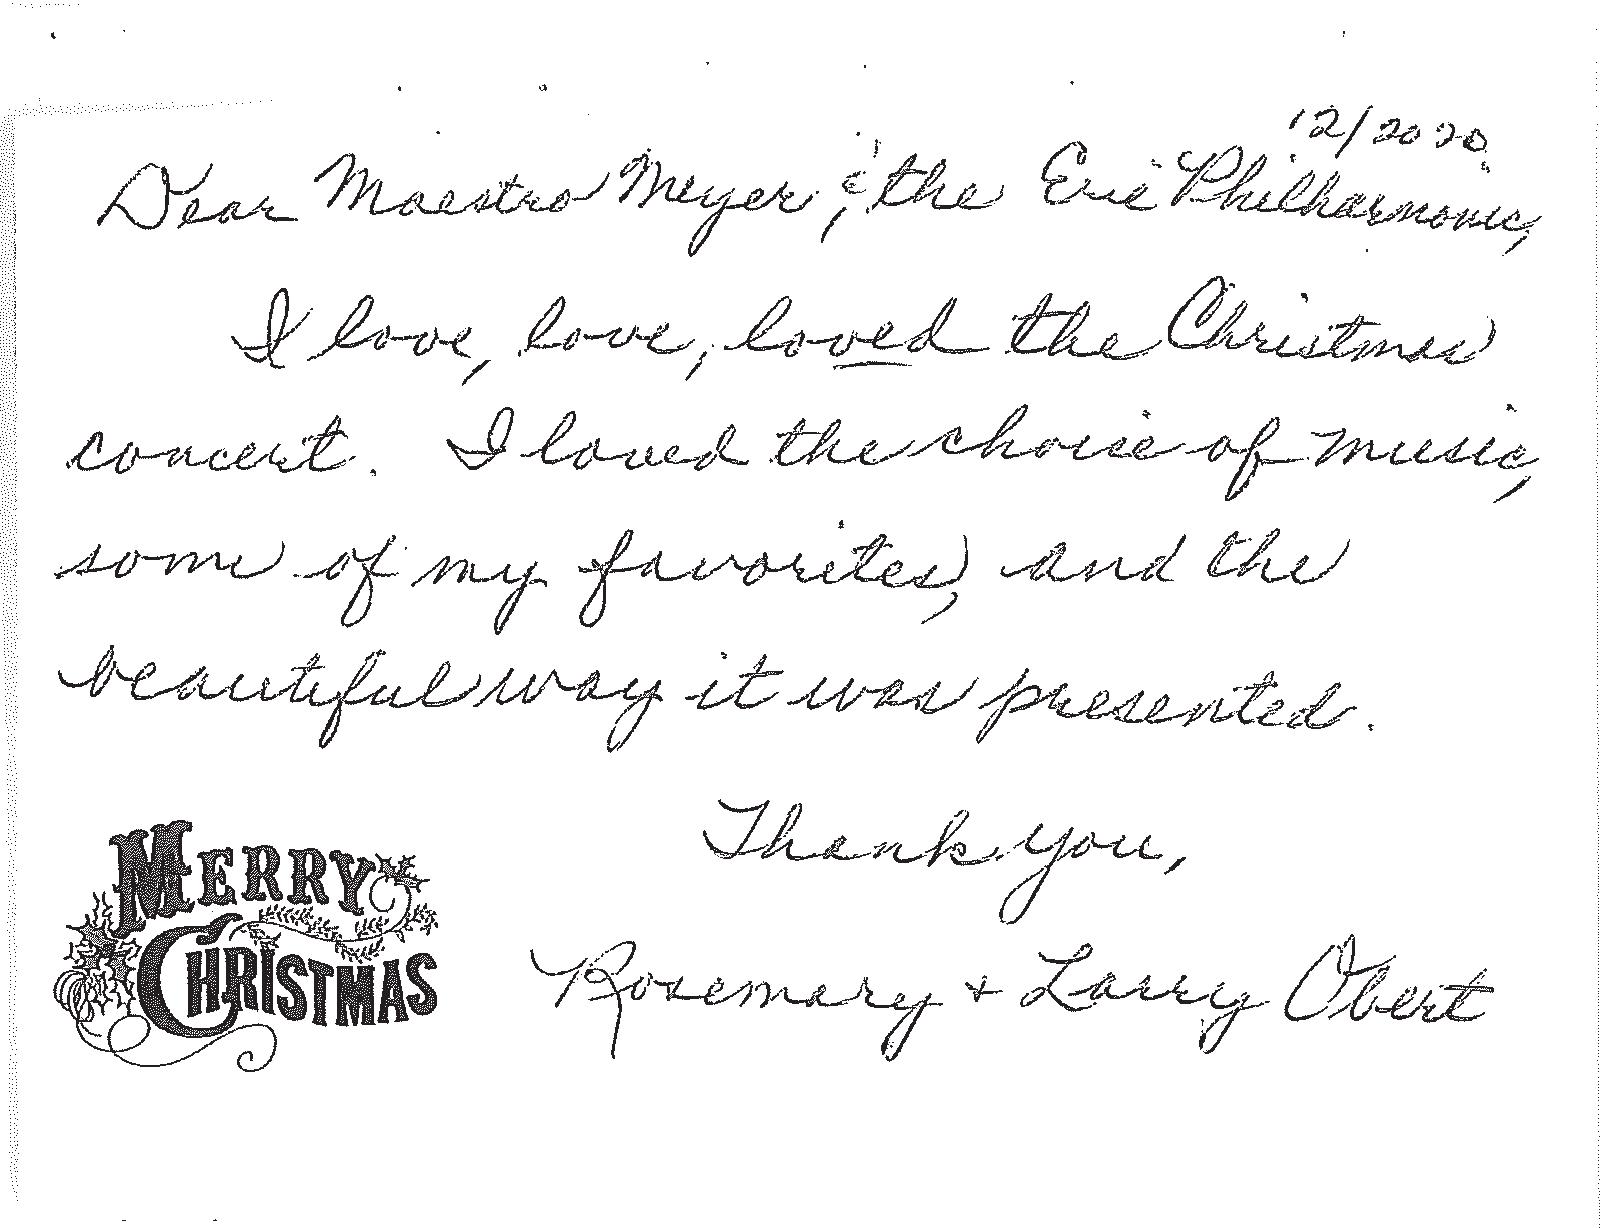 12/2020
Dear Maestro Meyer, & the Erie Philharmonic,
I love, love, loved the Christmas
concert. I loved the choice of music,
some of my favorites, and the
beautiful way it was presented.
Thank you,
Rosemary + Larry Obert
MERRY
CHRISTMAS